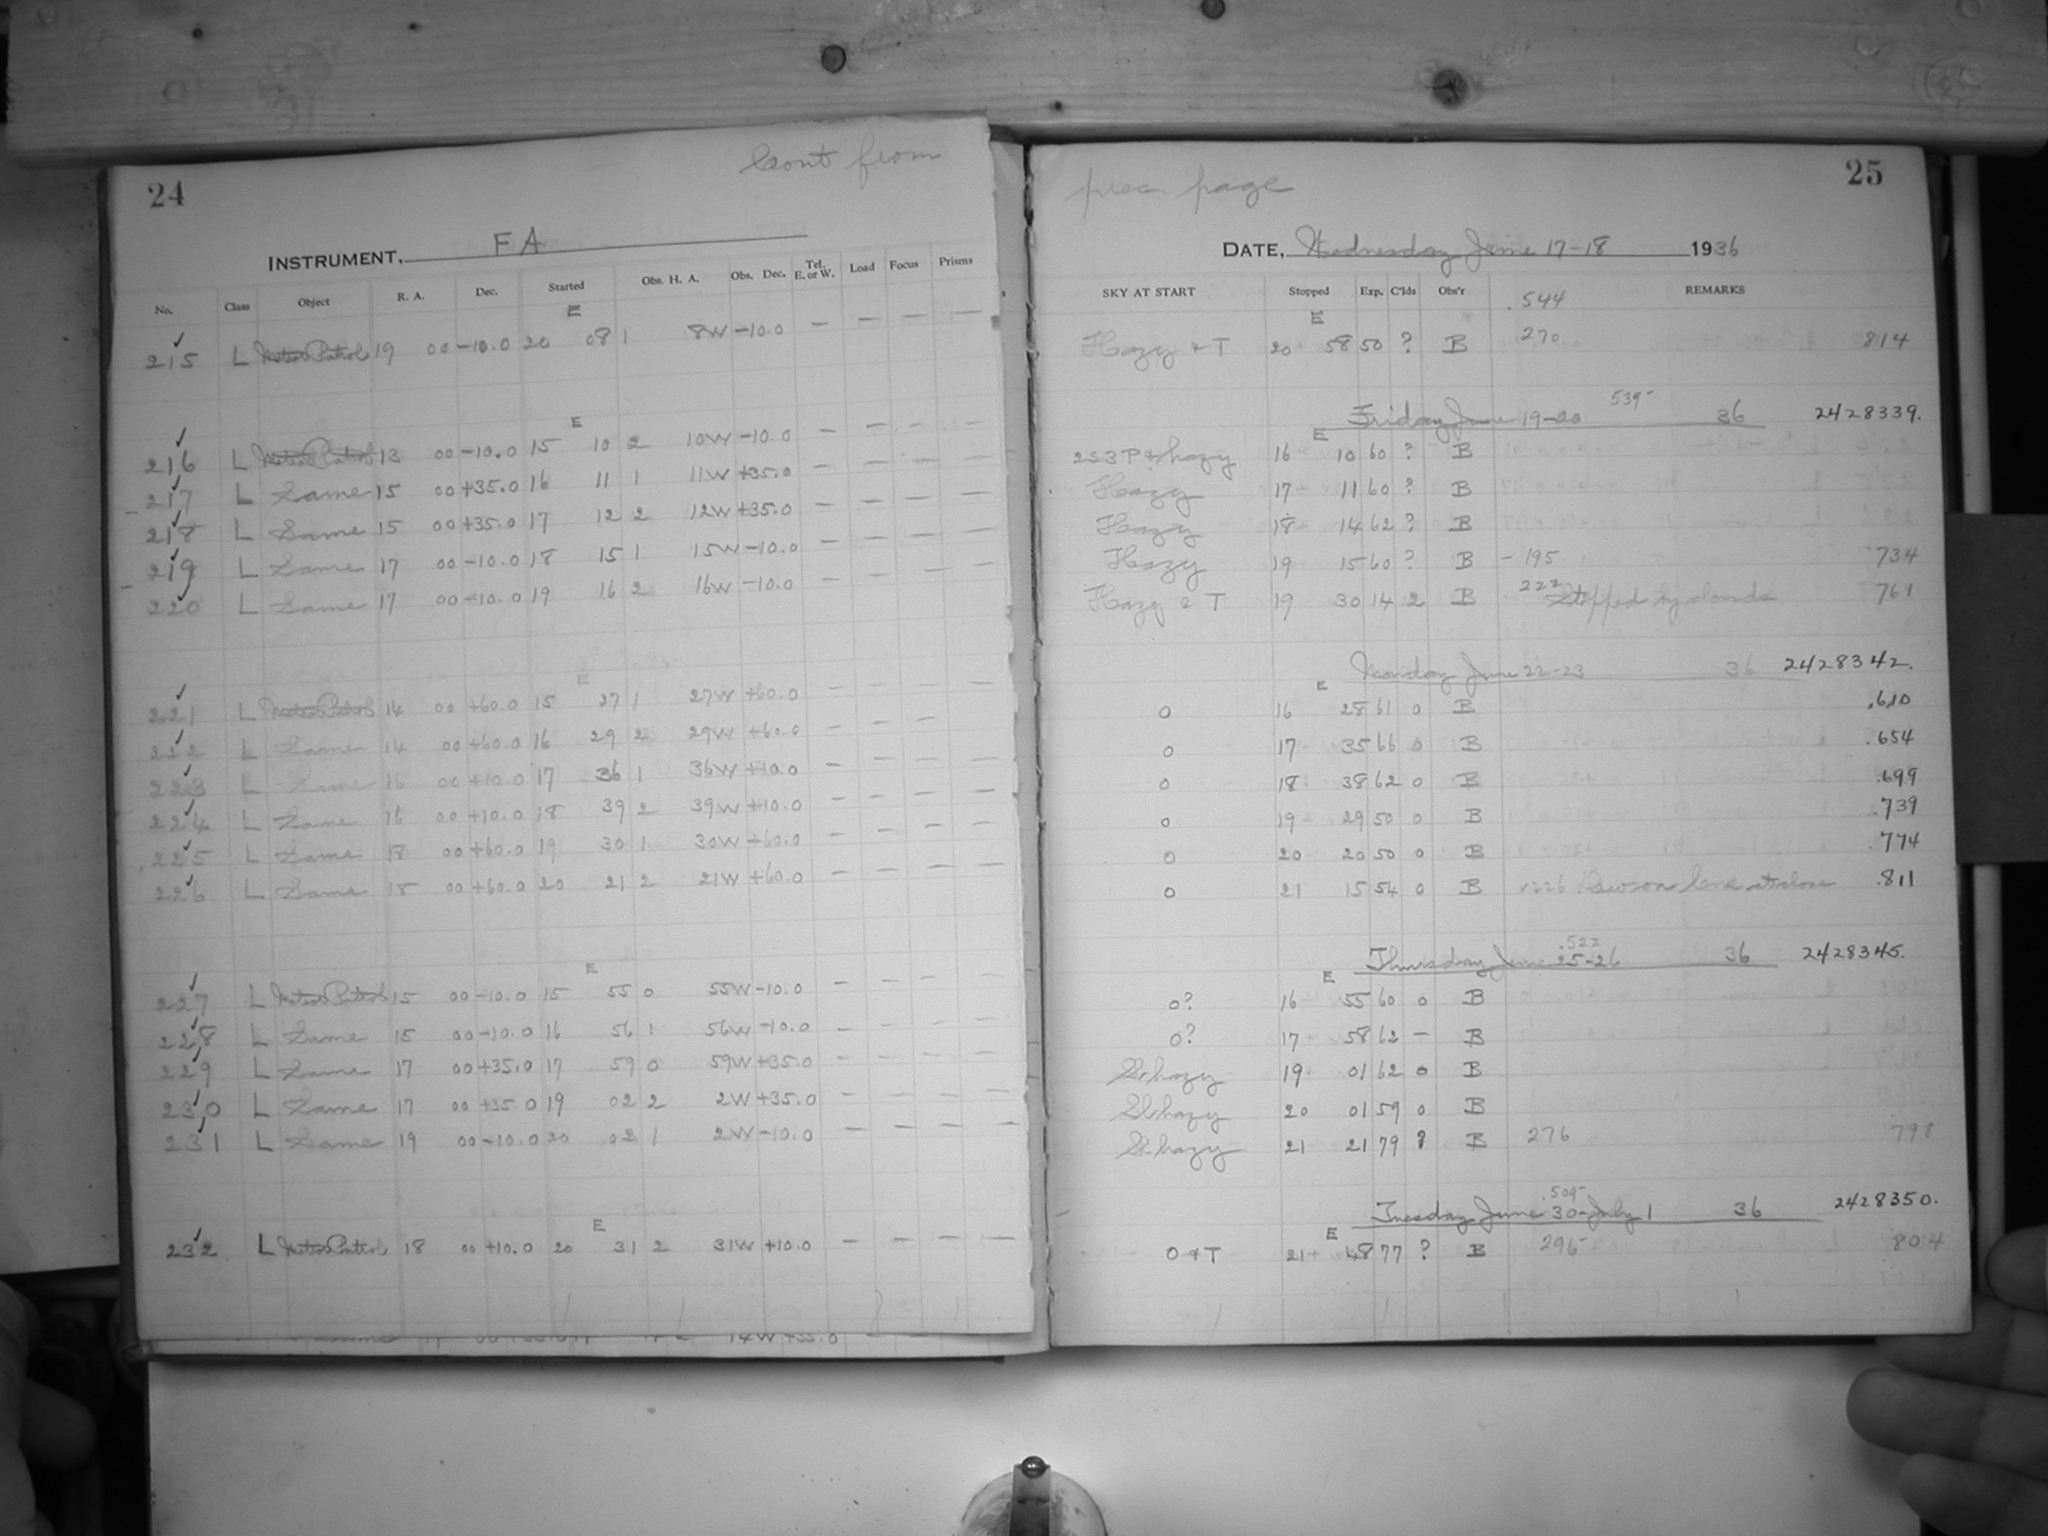 24
Cont from
INSTRUMENT, FA
No. Class Object R. A. Dec. Started Obs. H. A. Obs. Dec. Tel. E. or W. Load Focus Prisms
E
215 L Meteor Patrol 19 00 -10.0 20 08 1 8W -10.0 — — — —
E
216 L Meteor Patrol 13 00 -10.0 15 10 2 10W -10.0 — — — —
217 L Same 15 00 +35.0 16 11 1 11W +35.0 — — — —
218 L Same 15 00 +35.0 17 12 2 12W +35.0 — — — —
219 L Same 17 00 -10.0 18 15 1 15W -10.0 — — — —
220 L Same 17 00 -10.0 19 16 2 16W -10.0 — — — —
E
221 L Meteor Patrol 14 00 +60.0 15 27 1 27W +60.0 — — — —
222 L Same 14 00 +60.0 16 29 2 29W +60.0 — — —
223 L Same 16 00 +10.0 17 36 1 36W +10.0 — — — —
224 L Same 16 00 +10.0 18 39 2 39W +10.0 — — — —
225 L Same 18 00 +60.0 19 30 1 30W +60.0 — — — —
226 L Same 18 00 +60.0 20 21 2 21W +60.0 — — — —
E
227 L Meteor Patrol 15 00 -10.0 15 55 0 55W -10.0 — — — —
228 L Same 15 00 -10.0 16 56 1 56W -10.0 — — — —
229 L Same 17 00 +35.0 17 59 0 59W +35.0 — — — —
230 L Same 17 00 +35.0 19 02 2 2W +35.0 — — — —
231 L Same 19 00 -10.0 20 02 1 2W -10.0 — — — —
E
232 L Meteor Patrol 18 00 +10.0 20 31 2 31W +10.0 — — — —
25
prec page
DATE, Wednesday June 17-18 1936
SKY AT START Stopped Exp. C'lds Obs'r REMARKS
.544
E
Hazy & T 20 58 50 ? B 270 814
539-
Friday June 19-20 36 2428339.
E
2S3P & hazy 16 10 60 ? B
Hazy 17 11 60 ? B
Hazy 18 14 62 ? B
Hazy 19 15 60 ? B - 195 734
Hazy & T 19 30 14 2 B 222 Stopped by clouds 761
Monday June 22-23 36 2428342.
E
0 16 28 61 0 B .610
0 17 35 66 0 B .654
0 18 38 62 0 B .699
0 19 29 50 0 B .739
0 20 20 50 0 B .774
0 21 15 54 0 B 226 Dew on lens at close .811
.522
Thursday June 25-26 36 2428345.
E
0? 16 55 60 0 B
0? 17 58 62 — B
Sl hazy 19 01 62 0 B
Sl hazy 20 01 59 0 B
Sl hazy 21 21 79 ? B 276 798
.509-
Tuesday June 30-July 1 36 2428350.
E
0 & T 21 48 77 ? B 295- 804